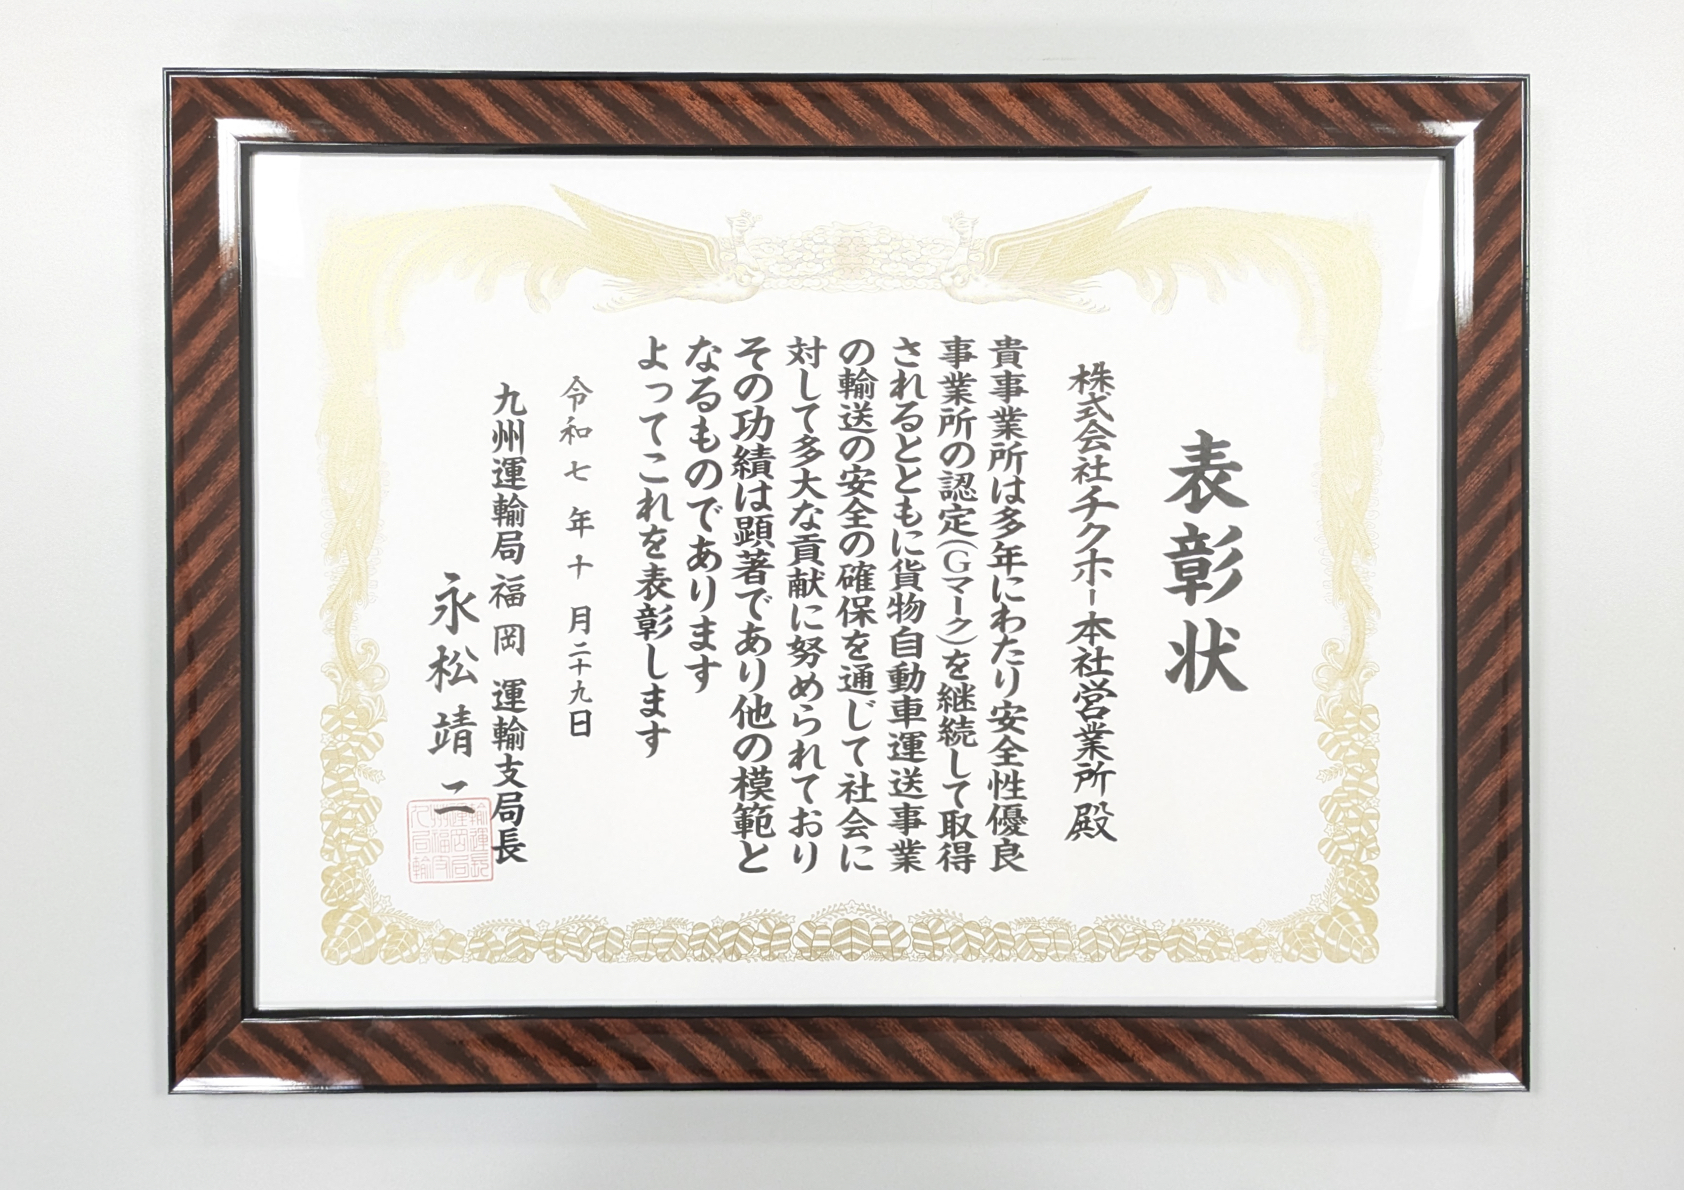 表彰状
株式会社チクホー本社営業所 殿
貴事業所は多年にわたり安全性優良
事業所の認定(Gマーク)を継続して取得
されるとともに貨物自動車運送事業
の輸送の安全の確保を通じて社会に
対して多大な貢献に努められており
その功績は顕著であり他の模範と
なるものであります
よってこれを表彰します
令和七年十月二十九日
九州運輸局福岡運輸支局長
永松靖二